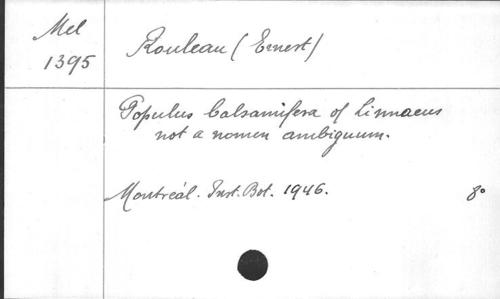 Mel
1395
Rouleau (Ernest)
Populus balsamifera of Linnaeus
not a nomen ambiguum.
Montréal. Inst. Bot. 1946. 8°